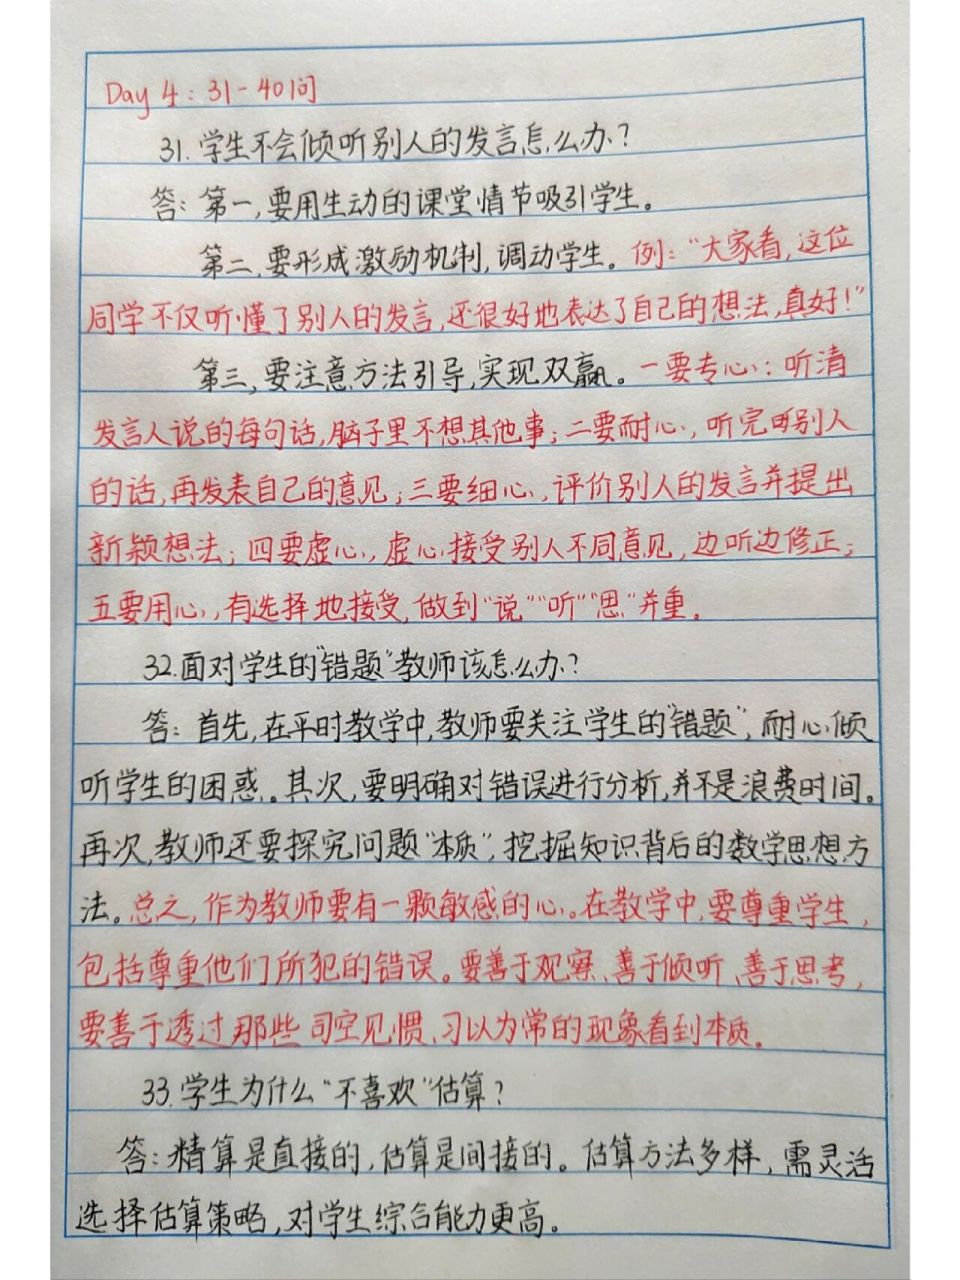 Day 4：31-40问
31.学生不会倾听别人的发言怎么办？
答：第一,要用生动的课堂情节吸引学生。
第二,要形成激励机制,调动学生。例：“大家看,这位
同学不仅听懂了别人的发言,还很好地表达了自己的想法,真好！”
第三,要注意方法引导,实现双赢。一要专心：听清
发言人说的每句话,脑子里不想其他事；二要耐心,听完别人
的话,再发表自己的意见；三要细心,评价别人的发言并提出
新颖想法；四要虚心,虚心接受别人不同意见,边听边修正；
五要用心,有选择地接受,做到“说”“听”“思”并重。
32.面对学生的“错题”教师该怎么办？
答：首先,在平时教学中,教师要关注学生的“错题”,耐心倾
听学生的困惑。其次,要明确对错误进行分析,并不是浪费时间。
再次,教师还要探究问题“本质”,挖掘知识背后的数学思想方
法。总之,作为教师要有一颗敏感的心。在教学中,要尊重学生,
包括尊重他们所犯的错误。要善于观察、善于倾听、善于思考,
要善于透过那些司空见惯、习以为常的现象看到本质。
33.学生为什么“不喜欢”估算？
答：精算是直接的,估算是间接的。估算方法多样,需灵活
选择估算策略,对学生综合能力更高。